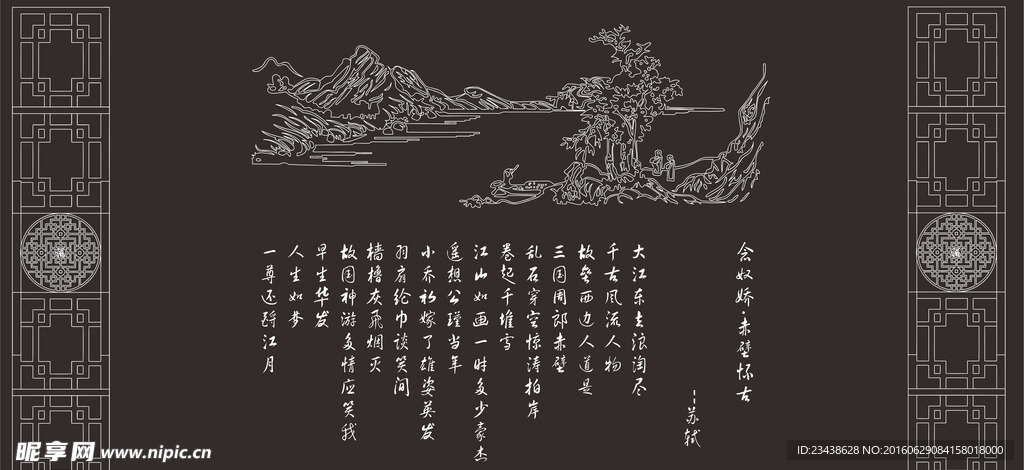 念奴娇·赤壁怀古
--苏轼
大江东去浪淘尽
千古风流人物
故垒西边人道是
三国周郎赤壁
乱石穿空惊涛拍岸
卷起千堆雪
江山如画一时多少豪杰
遥想公瑾当年
小乔初嫁了雄姿英发
羽扇纶巾谈笑间
樯橹灰飞烟灭
故国神游多情应笑我
早生华发
人生如梦
一尊还酹江月
昵享网 www.nipic.cn
ID:23438628 NO:20160629084158018000